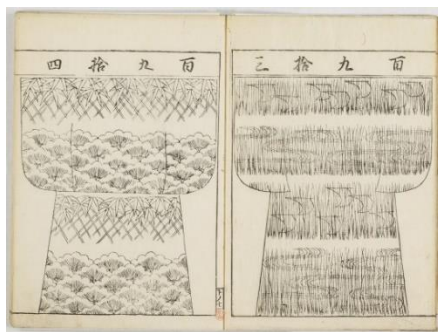 百九拾三
百九拾四